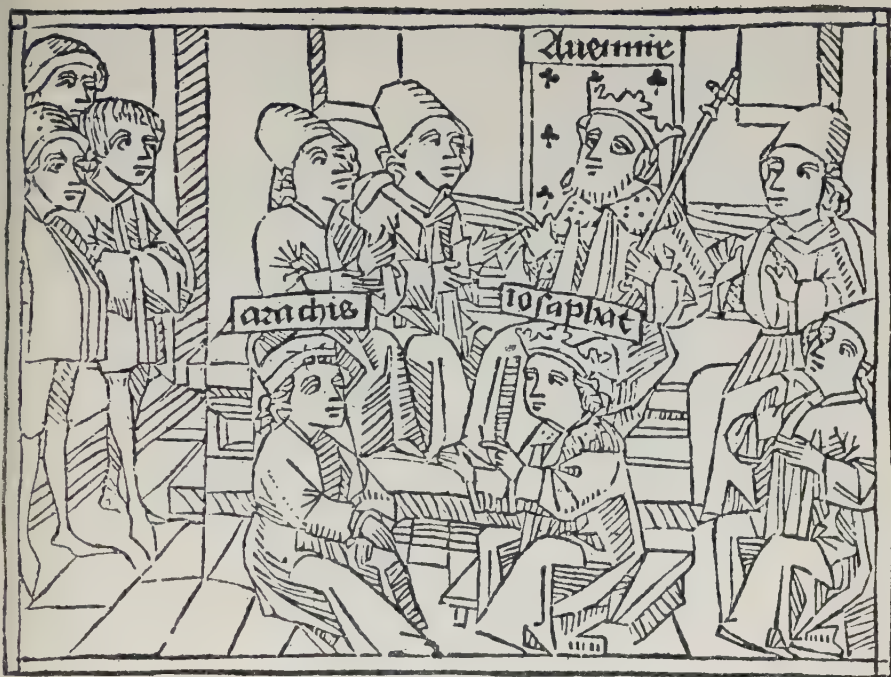 Auennir
arachis
iosaphat